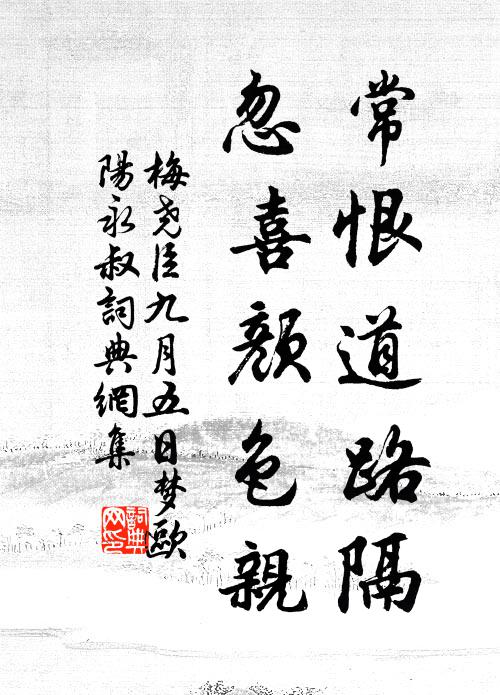 常恨道路隔
忽喜顏色親
梅堯臣九月五日梦歐
陽永叔詞典網集
詞典网印